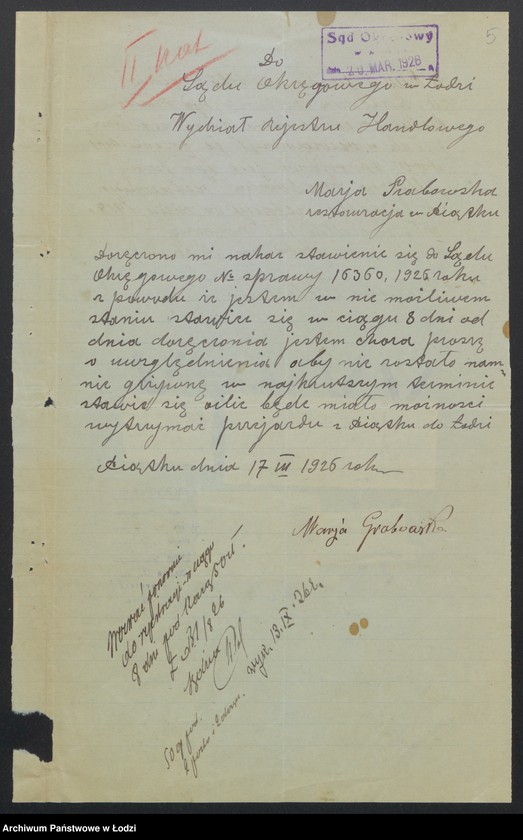 5
II kat
Sąd Okręgowy
20. MAR. 1926
Do
Sądu Okręgowego w Łodzi
Wydział Rejestru Handlowego
Marja Grabowska
restauracja w Piątku
Doręczono mi nakaz stawienie się do Sądu
Okręgowego № sprawy 16360, 1926 roku
z powodu iż jestem w nie możliwem
staniu stawice się w ciągu 8 dni od
dnia doręczenia jestem chora proszę
o uwzględnienia aby nie zostało
nie grzywnę w najkrutszym terminie
stawie się oile będe miało możności
wytrzymać przejazdu z Piątku do Łodzi
Piątku dnia 17 III 1926 roku
Marja Grabowska
Wezwać ponownie
do rejestracji w ciągu
8 dni pod karą
Sędzia
wysł. 13.IV.26r.
50 gr